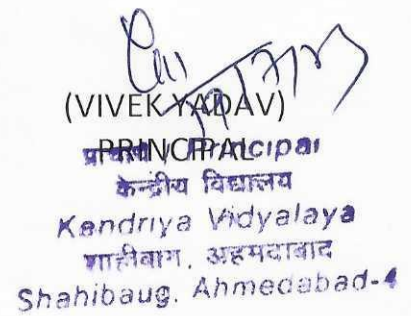 (VIVEK YADAV)
PRINCIPAL
प्राचार्य / Principal
केन्द्रीय विद्यालय
Kendriya Vidyalaya
शाहीबाग, अहमदाबाद
Shahibaug, Ahmedabad-4